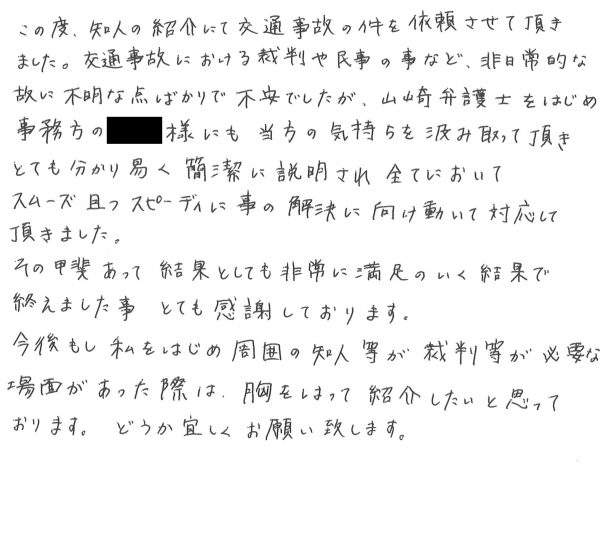 この度、知人の紹介にて交通事故の件を依頼させて頂き
ました。交通事故における裁判や民事の事など、非日常的な
故に不明な点ばかりで不安でしたが、山崎弁護士をはじめ
事務方の 様にも 当方の気持ちを汲み取って頂き
とても分かり易く 簡潔に説明され 全てにおいて
スムーズ且つスピーディに事の解決に向け動いて対応して
頂きました。
その甲斐あって 結果としても非常に満足のいく結果で
終えました事 とても感謝しております。
今後もし私をはじめ周囲の知人等が裁判等が必要な
場面があった際は、胸をはって紹介したいと思って
おります。 どうか宜しくお願い致します。